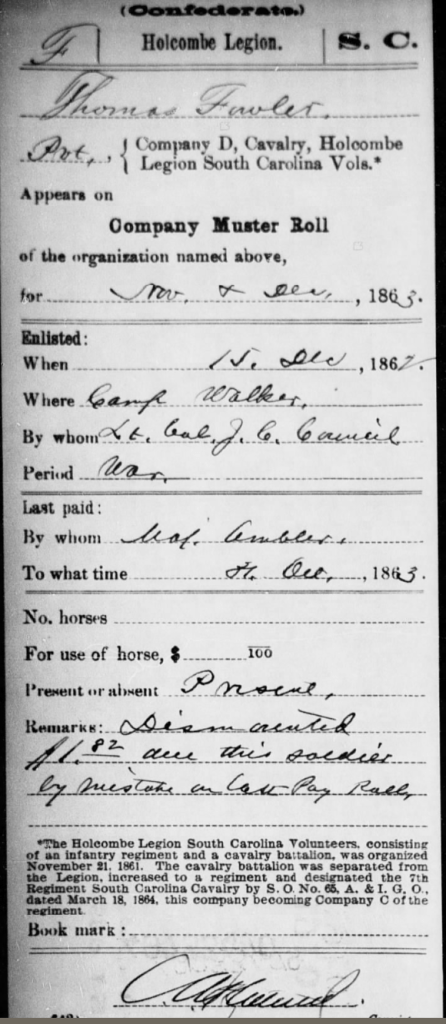 (Confederate.)
F | Holcombe Legion. | S. C.
Thomas Fowler.
Pvt., { Company D, Cavalry, Holcombe
Legion South Carolina Vols.*
Appears on
Company Muster Roll
of the organization named above,
for Nov. & Dec., 1863.
Enlisted:
When 15. Dec, 1862.
Where Camp Walker,
By whom Lt. Col. J. C. Council
Period War.
Last paid:
By whom Maj. Ambler.
To what time 31. Oct., 1863.
No. horses
For use of horse, $ 100
Present or absent Present,
Remarks: Dismounted
$1.82 due this soldier
by mistake on last Pay Roll,
*The Holcombe Legion South Carolina Volunteers, consisting
of an infantry regiment and a cavalry battalion, was organized
November 21, 1861. The cavalry battalion was separated from
the Legion, increased to a regiment and designated the 7th
Regiment South Carolina Cavalry by S. O. No. 65, A. & I. G. O.,
dated March 18, 1864, this company becoming Company C of the
regiment.
Book mark: